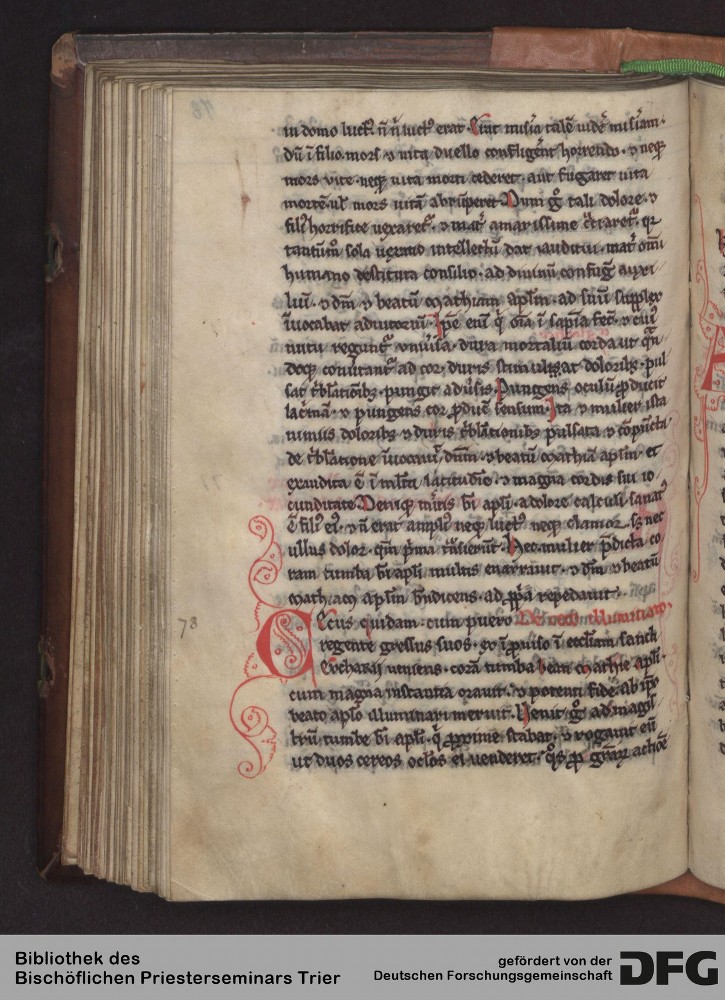 in domo luctꝰ ñ ñ luctꝰ erat. Erat miſ̃ia talē uidẽ miſiam.
dũ ĩ filio mors ⁊ uita duello confligerẽt horrendo. ⁊ neqꝫ
mors uite. neqꝫ uita morti cederet. aut fugaret uita
mortē. ul̛ mors uitā abrũperet. Dum gͦ tali dolore. ⁊
filiꝰ horrifice uexaretᷣ. ⁊ mat̛ amariſſime
tantũm̊ sola uexatio intellectũ dat auditui. mat̛ om̄i
humano deſtituta conſilio. ad diuinũ confug̛ auxi
liũ. ⁊ dm̄ ⁊ beatũ Mathiam apl̄m. ad ſuũ ſupplex
ĩuocabat adiutoriũ. Ip̄e enĩ ĩ ſap̃ia fec̛. ⁊ cuiꝰ
nutu regunt̛ vniũſa. dura mortaliũ corda ut
doqꝫ conũtant̛ ad cor. duris ſtimulis dolorib̛. pul
ſat t̛bl̛ationib̛. pungit adũſis. Pungens oculũ ꝓducit
lac̛mā. ⁊ pungens cor ꝓduc̛ ſenſum. Ita ⁊ mulier iſta
nimiis dolorib̛ ⁊ duris t̛bl̛ationib̛ pulſata ⁊ cōpũcta
de t̛bl̛atione ĩuocauit dm̄m. ⁊ beatũ Mathiā apl̄m. et
exaudita ē ĩ ml̛ta latitudĩe. ⁊ magna cordis ſui io
cunditate. Deniqꝫ m̛itis bĩ apl̄i. a dolore calculi ſanatꝰ
ē filiꝰ eiꝰ. ⁊ ñ erat ampliꝰ neqꝫ luctꝰ neqꝫ clamor. ſꝫ nec
ullus dolor. qm̄ p̛ma t̛nſierũt. Hec mulier p̄dicta co
ram tumba bĩ apl̄i multis enarrauit. ⁊ dm̄ ⁊ beatũ
Math̛iam apl̄m bñdicens. ad ꝓp̛a repedauit.
Cecus quidam. cum puero De ceco illuminato.
regente greſſus ſuos. ĩprouiſo ĩ eccl̄iam ſancti
Eucharii ueniens. corā tumba beati Mathie apl̄i.
cum magna inſtantia orauit. ⁊ potenti fide ab ip̄o
beato apl̄o illuminari meruit. Uenit gͦ ad magiſ
trũ tumbe bĩ apl̄i. q̛ ꝓxime ſtabat. ⁊ rogauit eũ
ut duos cereos oclos ei uenderet. ꝓ gr̄arꝝ actiōe
78
Bibliothek des
Bischöflichen Priesterseminars Trier
gefördert von der
Deutschen Forschungsgemeinschaft
DFG